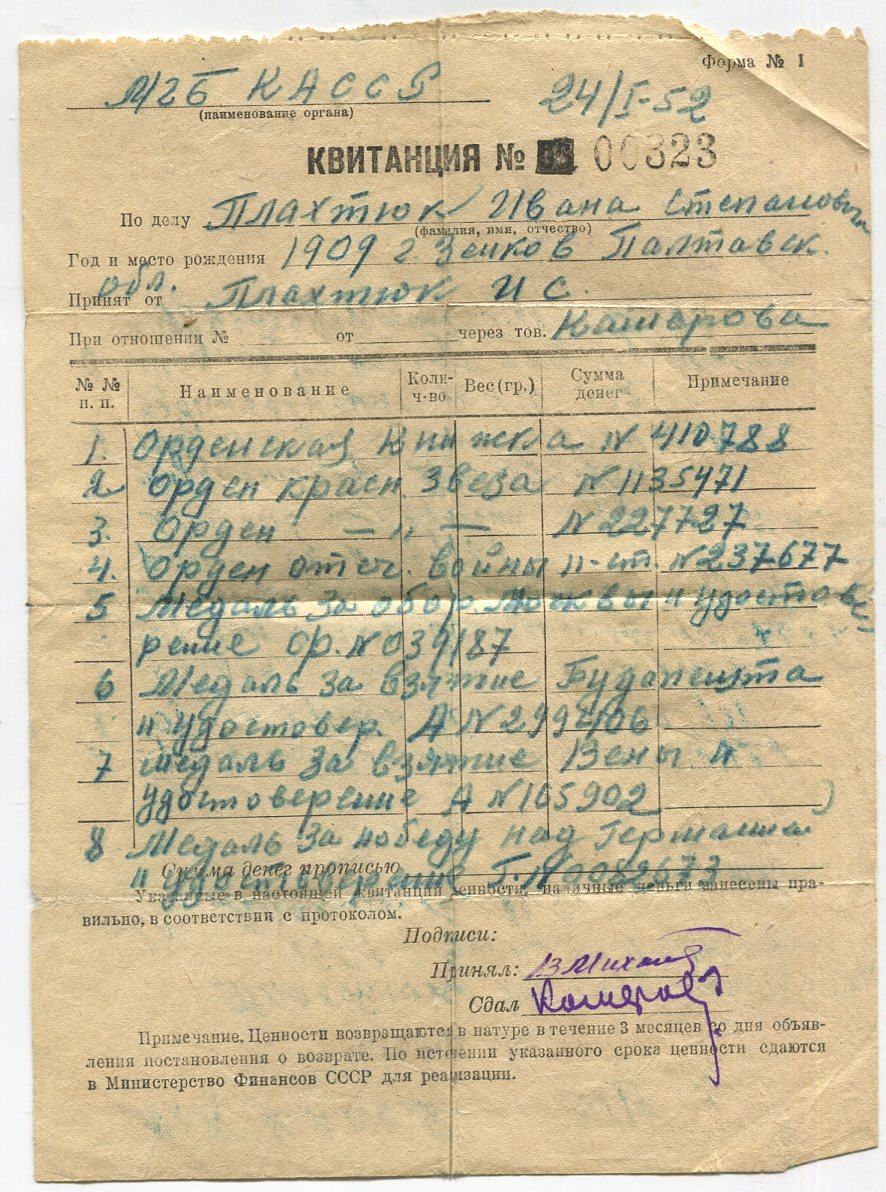 Форма № 1
МГБ КАССР 24/I-52
(наименование органа)
КВИТАНЦИЯ № 00323
По делу Плахтюк Ивана Степанович
(фамилия, имя, отчество)
Год и место рождения 1909 г. Зенков Палтавск.
обл.
Принят от Плахтюк И С.
При отношении № от через тов.
№ № п. п. Наименование Коли-ч-во Вес (гр.) Сумма денег Примечание
1. Орденская книжка № 410788
2 Орден красн. Звеза № 1135471
3. Орден — „ — № 227727
4. Орден отеч. войны II-ст. № 237677
5 Медаль За обор. Москвы и удостове
рение ор. № 039187
6 Медаль За взятие Будапешта
и удостовер. А № 299406
7 Медаль За взятие Вены и
удостоверение А № 165902
8 Медаль За победу над Германией
Сумма денег прописью
и удостоверение Г. № 0082673
Указанные в настоящей квитанции ценности, наличные деньги занесены пра-
вильно, в соответствии с протоколом.
Подписи:
Принял:
Сдал
Примечание. Ценности возвращаются в натуре в течение 3 месяцев со дня объяв-
ления постановления о возврате. По истечении указанного срока ценности сдаются
в Министерство Финансов СССР для реализации.